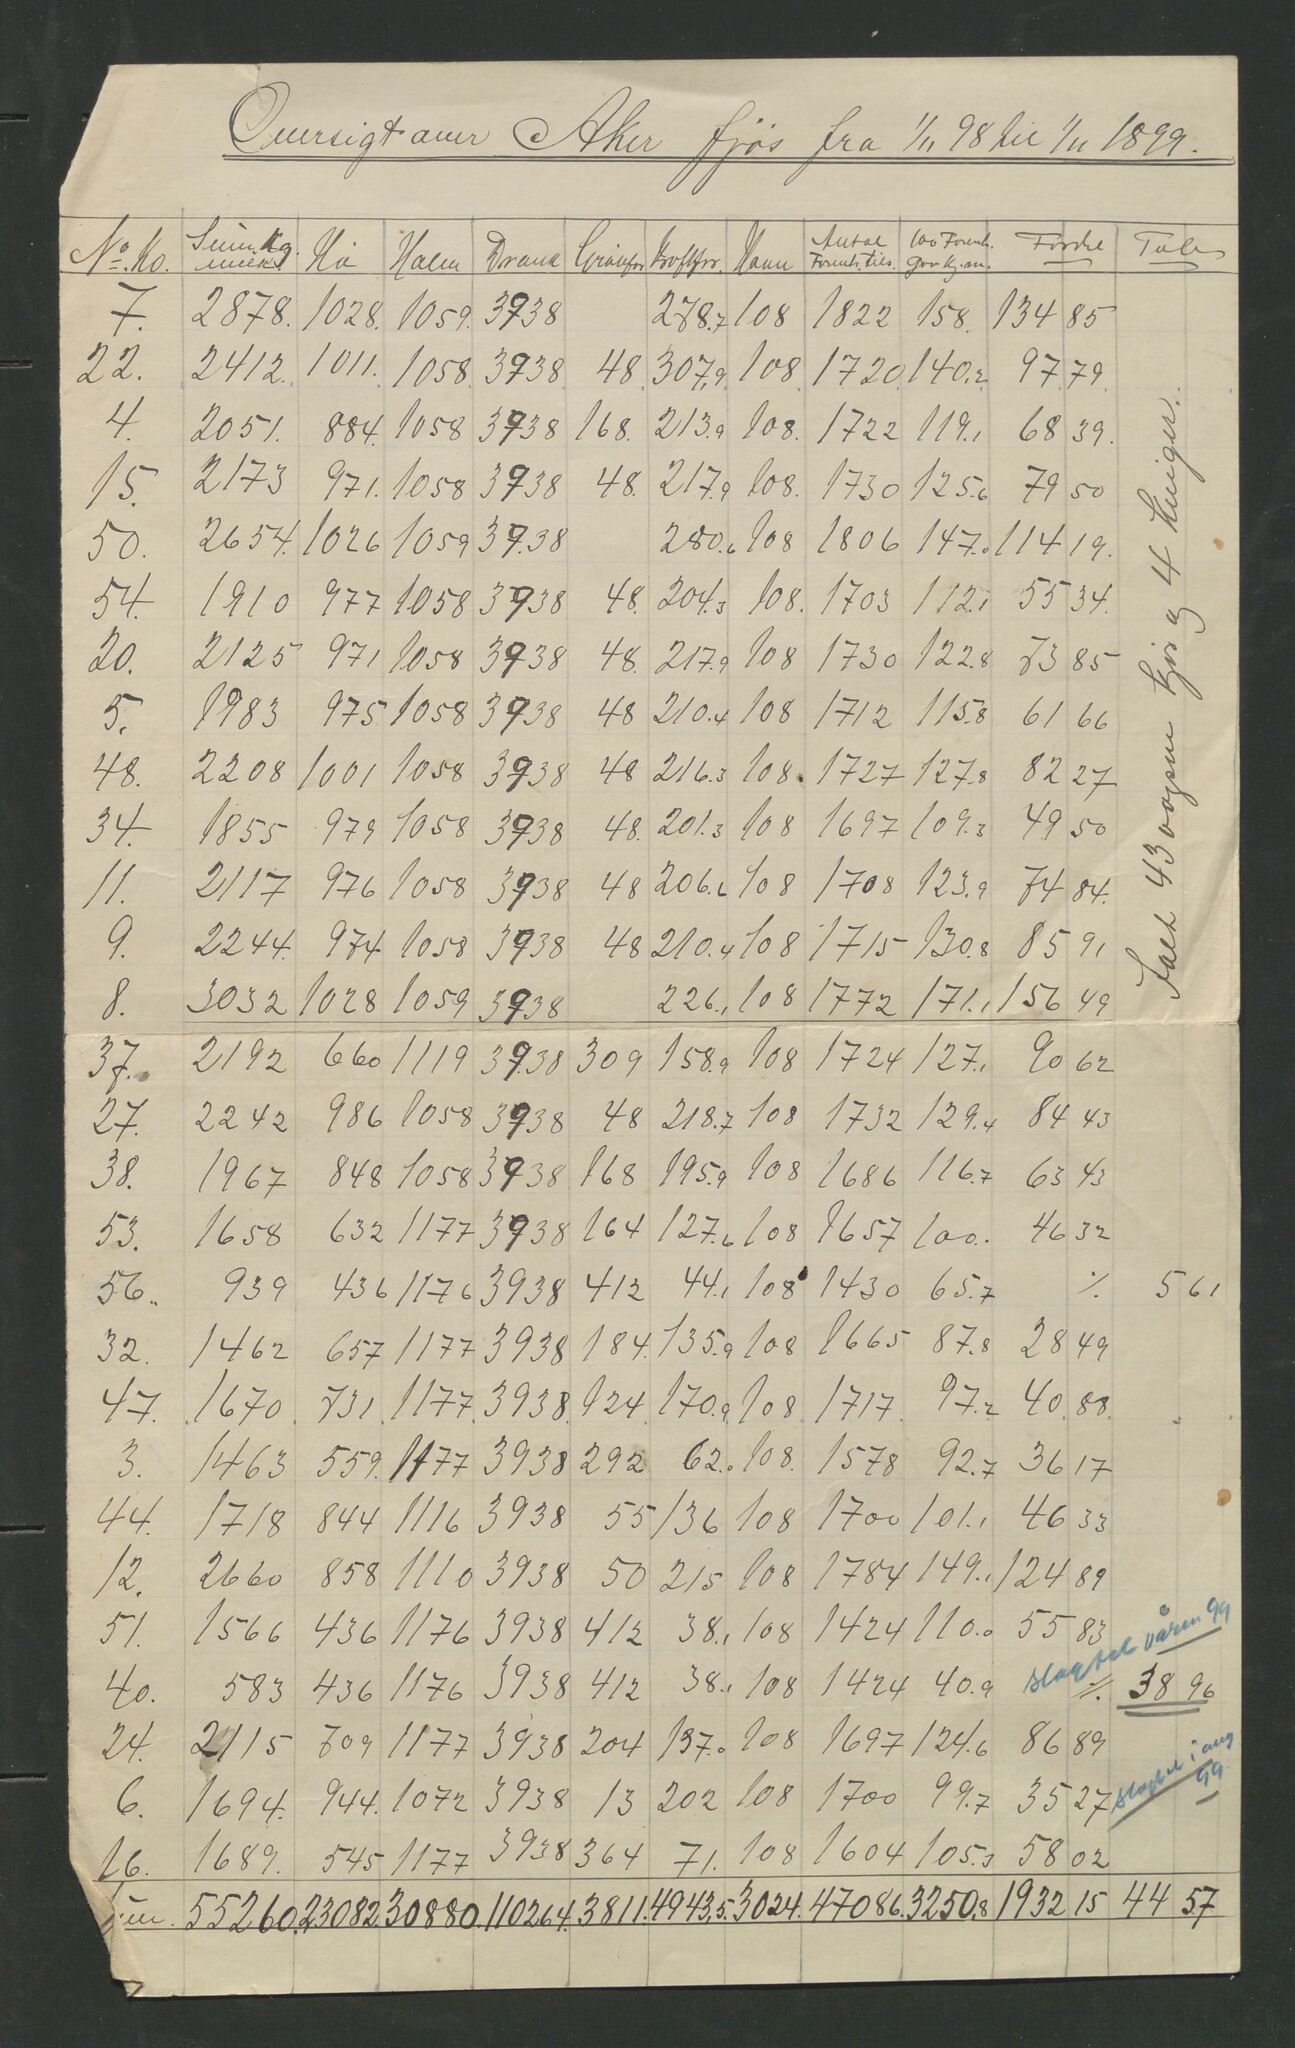 Oversigt over Aker fjös fra 1/11 98 til 1/11 1899.
No. Ko. Sum. Kg. melk Hö Halm Drank Grönfor Kraftfor. Havn Antal Forenh. tils. 100 Forenh. gav kg. m. Fordel Tab
7. 2878. 1028. 1059. 3938 278.7 108 1822 158. 134 85
22. 2412. 1011. 1058 3938 48. 307.9 108 1720 140.2 97 79.
4. 2051. 884. 1058 3938 168. 213.9 108. 1722 119.1 68 39.
15. 2173 971. 1058 3938 48. 217.9 108. 1730 125.6 79 50
50. 2654. 1026 1059 3938 280.6 108 1806 147.0 114 19.
54. 1910 977 1058 3938 48. 204.3 108. 1703 112.1 55 34.
20. 2125 971 1058 3938 48. 217.9 108 1730 122.8 73 85
5. 1983 975 1058 3938 48 210.4 108 1712 115.8 61 66
48. 2208 1001 1058 3938 48 216.3 108. 1727 127.8 82 27
34. 1855 979 1058 3938 48. 201.3 108 1697 109.3 49 50
11. 2117 976 1058 3938 48 206.6 108 1708 123.9 74 84.
9. 2244. 974 1058 3938 48 210.4 108 1715 130.8 85 91
8. 3032 1028 1059 3938 226.1 108 1772 171.1 156 49
37. 2192 660 1119 3938 309 158.9 108 1724 127.1 90 62
27. 2242 986 1058 3938 48 218.7 108 1732 129.4 84 43
38. 1967 848 1058 3938 168 195.9 108 1686 116.7 63 43
53. 1658 632 1177 3938 164 127.6 108 1657 100. 46 32
56. 939 436 1176 3938 412 44.1 108 1430 65.7 ٪ 5 61
32. 1462 657 1177 3938 184. 135.9 108 1665 87.8 28 49
47. 1670. 731. 1177. 3938. 124. 170.9 108. 1717. 97.2 40. 88.
3. 1463 559. 1177 3938 292 62.0 108. 1578 92.7 36 17
44. 1718 844 1116 3938 55 136 108 1700 101.1 46 33
12. 2660 858 1110 3938 50 215 108 1784 149.1 124 89
51. 1566 436 1176 3938 412 38.1 108 1424 110.0 55 83
slagtet våren 99
40. 583 436 1176 3938 412 38.1 108 1424 40.9 ٪. 38 96
24. 2115 709 1177 3938 204 137.0 108 1697 124.6 86 89
6. 1694. 944. 1072 3938 13 202 108 1700 99.7 35 27
slagtet i aug 99
16. 1689. 545 1177 3938 364 71. 108 1604 105.3 58 02
55260. 23082 30880. 110264. 3811. 4943.5. 3024. 47086. 3250.8 1932 15 44 57
Ialt 43 voxne kjör og 4 kviger.